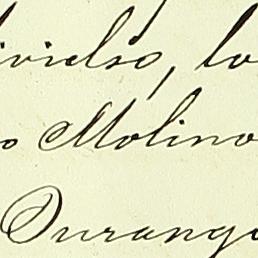 ivielso, lo
o Molino
Durango